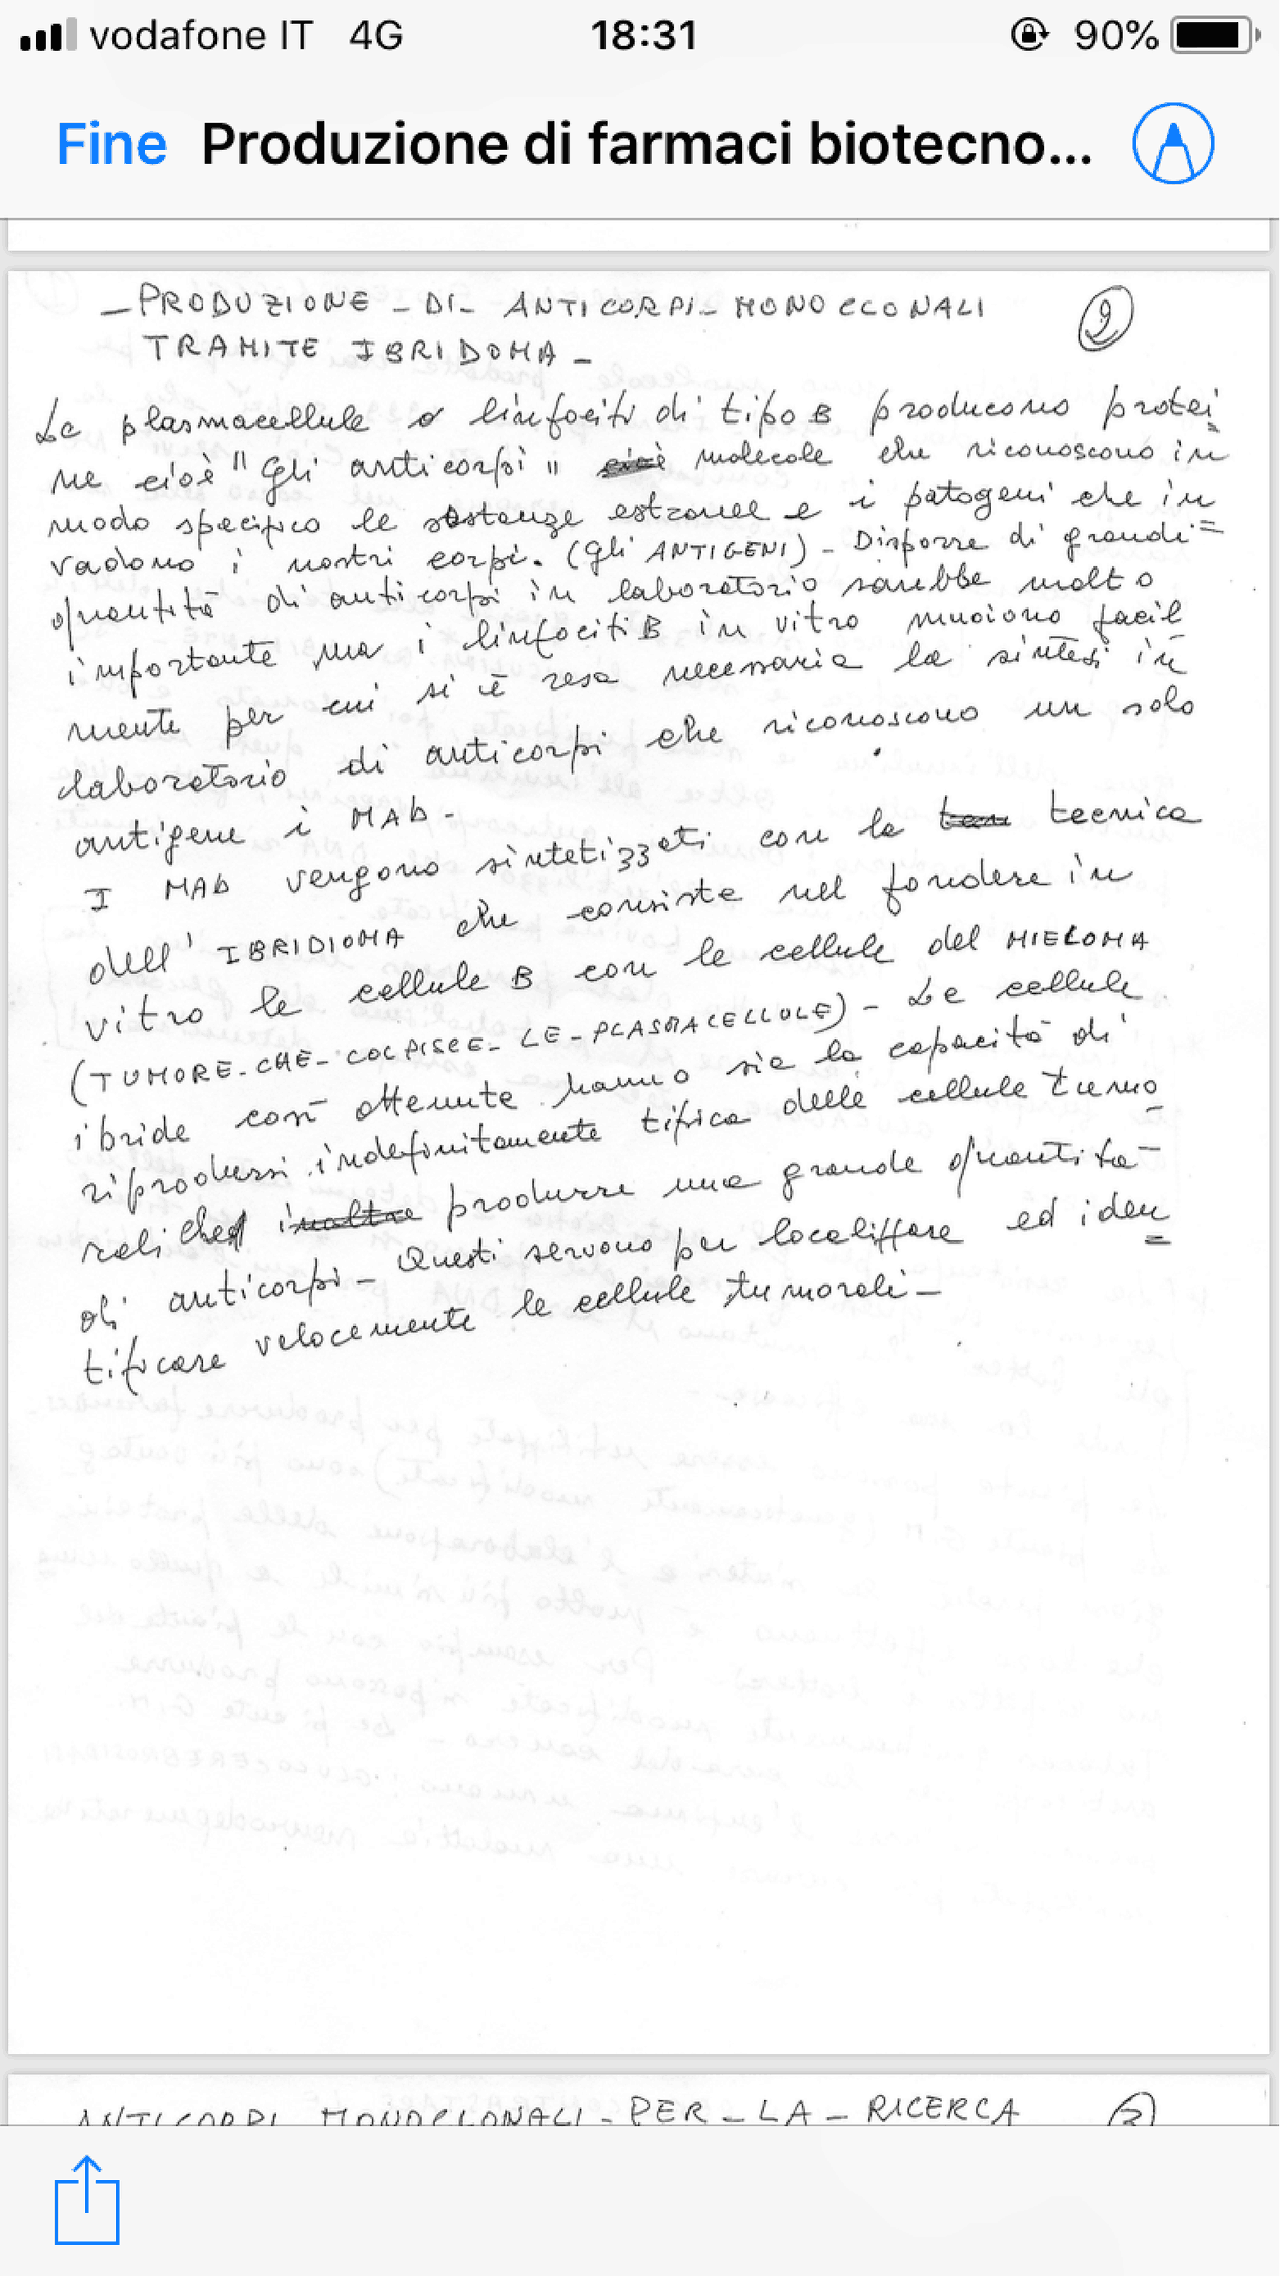 vodafone IT 4G 18:31 90%
Fine Produzione di farmaci biotecno...
- PRODUZIONE - DI - ANTICORPI - MONOCLONALI 2
TRAMITE IBRIDOMA -
Le plasmacellule o linfociti di tipo B producono protei
ne cioè "Gli anticorpi" cioè molecole che riconoscono in
modo specifico le sostanze estranee e i patogeni che in
vadono i nostri corpi. (Gli ANTIGENI) - Disporre di grandi =
quantità di anticorpi in laboratorio sarebbe molto
importante ma i linfociti B in vitro muoiono facil
mente per cui si è resa necessaria la sintesi in
laboratorio di anticorpi che riconoscono un solo
antigene i MAb -
I MAb vengono sintetizzati con la tecnica
dell' IBRIDIOMA che consiste nel fondere in
vitro le cellule B con le cellule del MIELOMA
(TUMORE - CHE - COLPISCE - LE - PLASMACELLULE) - Le cellule
ibride così ottenute hanno sia la capacità di
riprodursi indefinitamente tipica delle cellule tumo
rali che inoltre produrre una grande quantità
di anticorpi - Questi servono per localizzare ed iden
tificare velocemente le cellule tumorali -
ANTICORPI MONOCLONALI - PER - LA - RICERCA 3